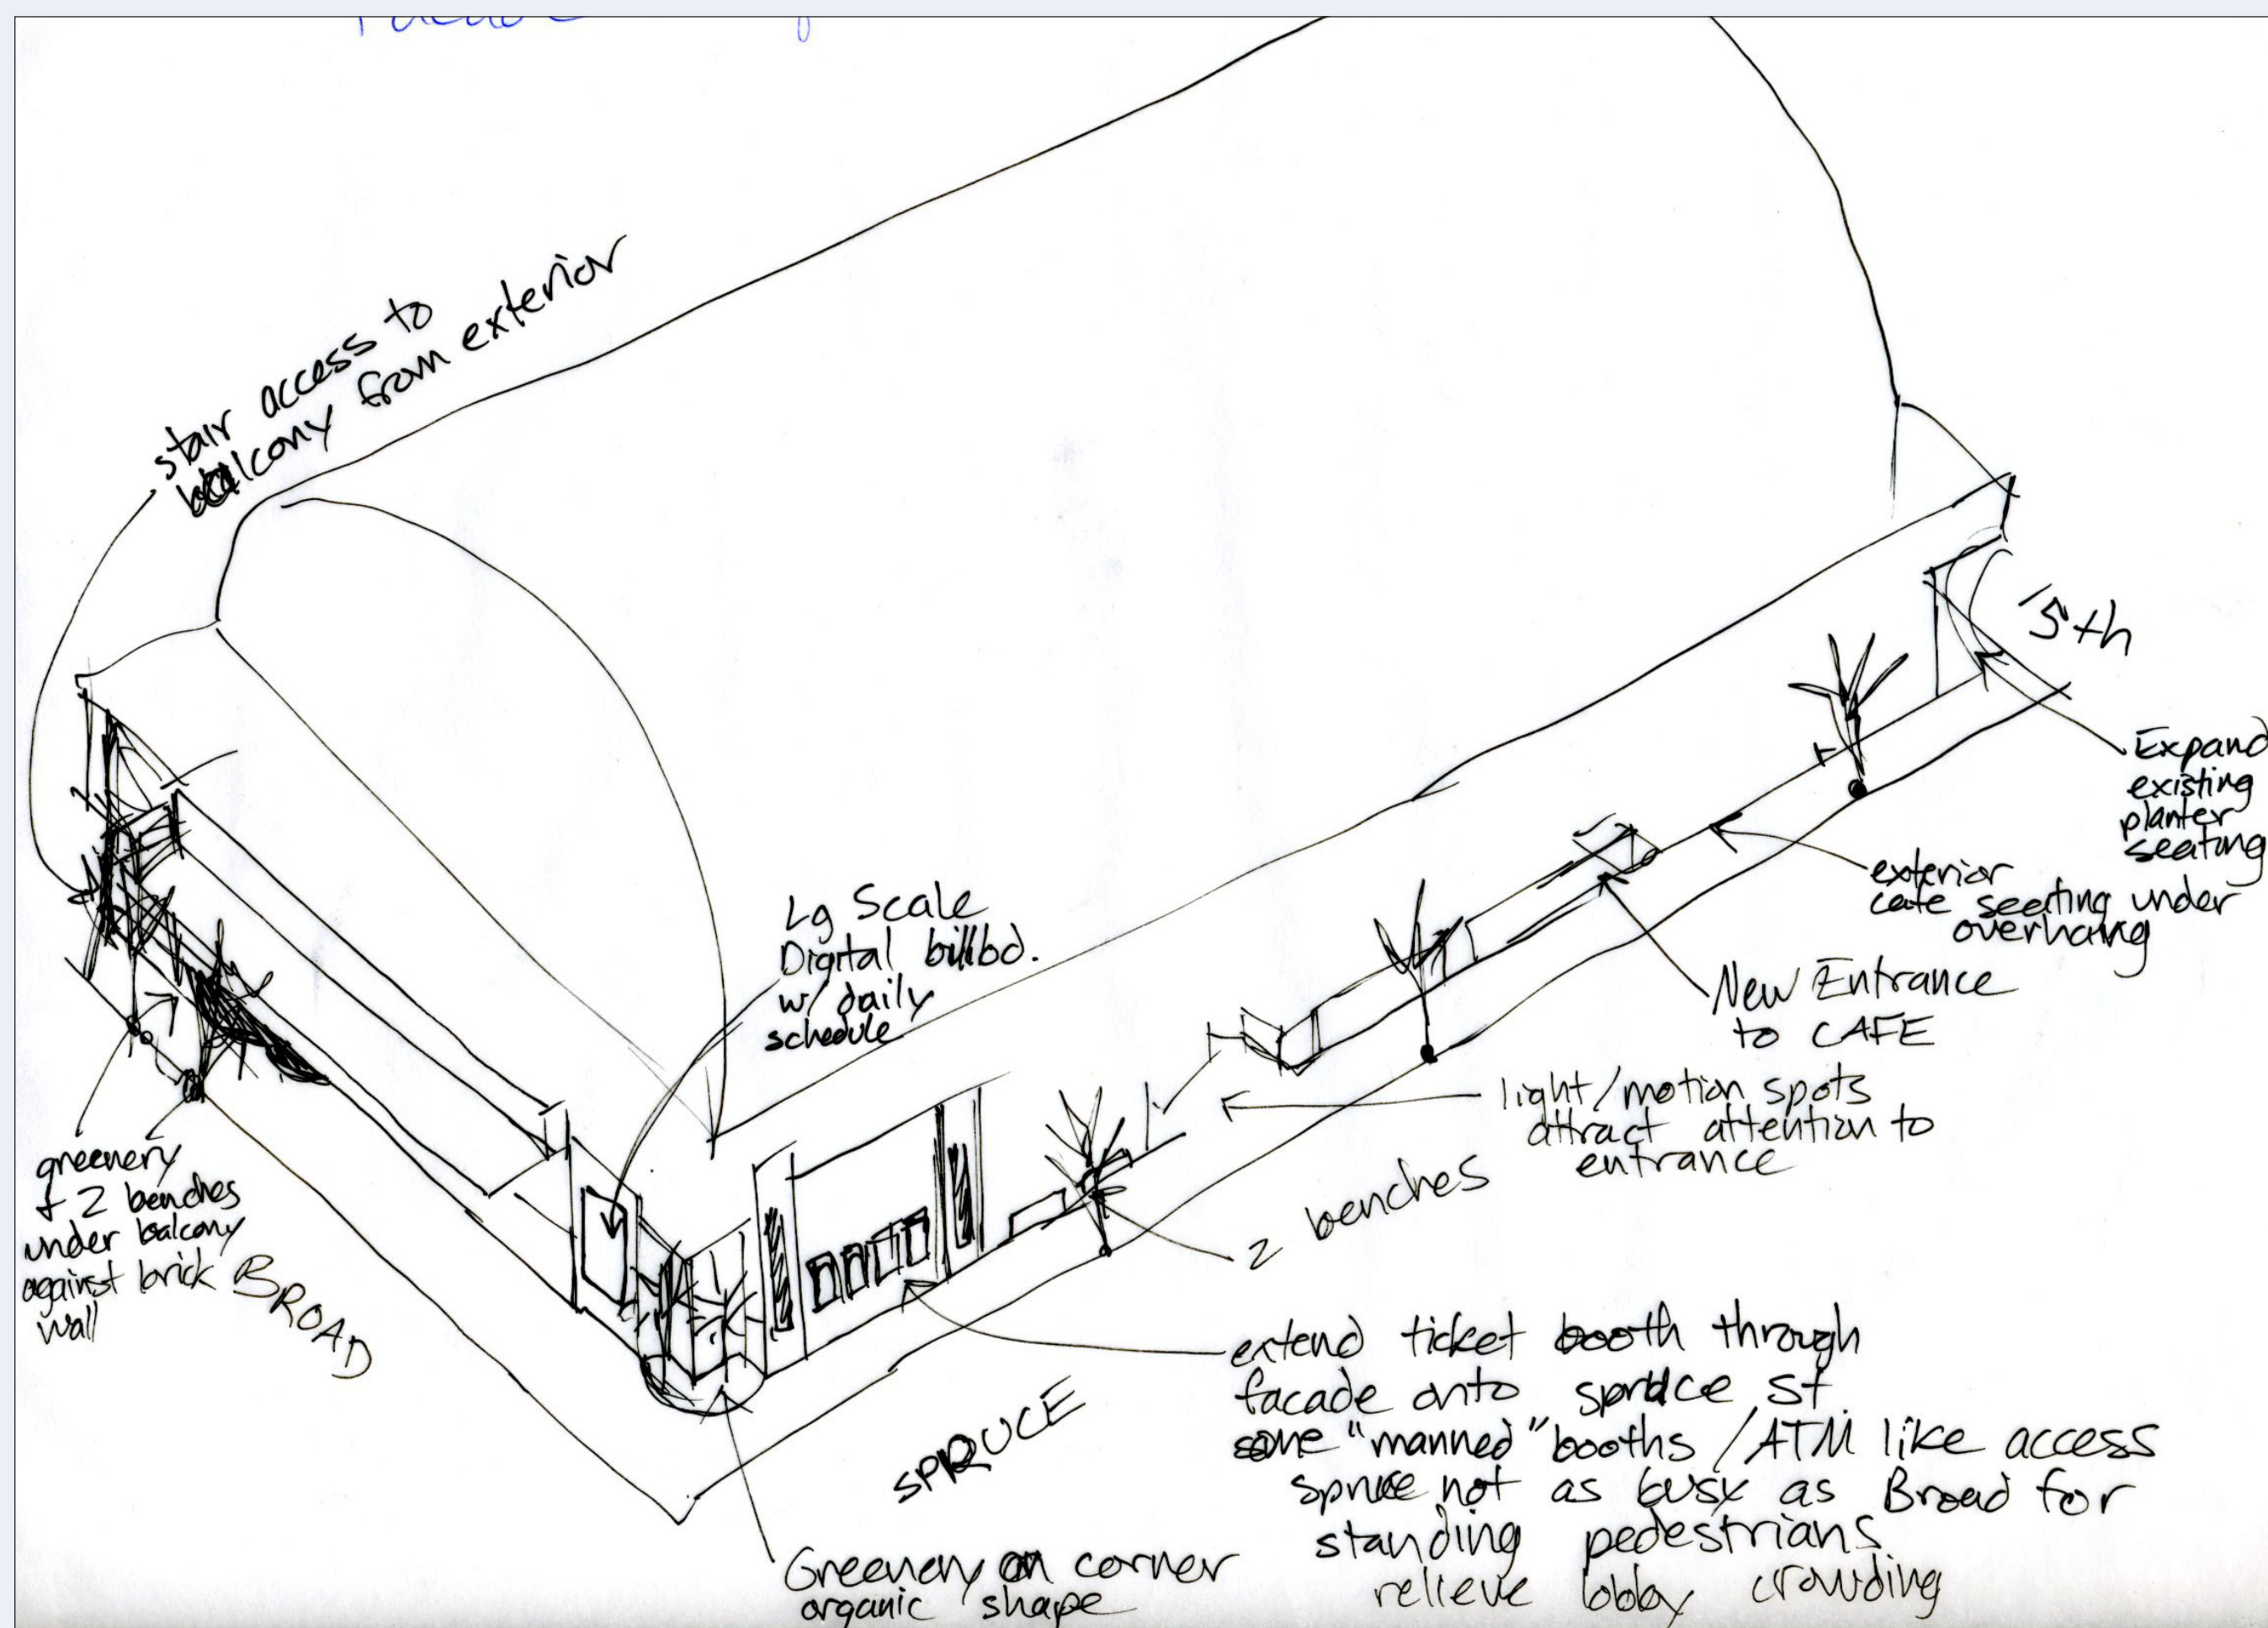 stair access to
balcony from exterior
15th
Expand
existing
planter
seating
exterior
cafe seating under
overhang
Lg Scale
Digital billbd.
w/ daily
schedule
New Entrance
to CAFE
light/motion spots
attract attention to
entrance
2 benches
greenery
+ 2 benches
under balcony
against brick
wall
BROAD
SPRUCE
extend ticket booth through
facade onto spruce st.
some "manned" booths / ATM like access
spruce not as busy as Broad for
standing pedestrians
relieve lobby crowding
Greenery on corner
organic shape